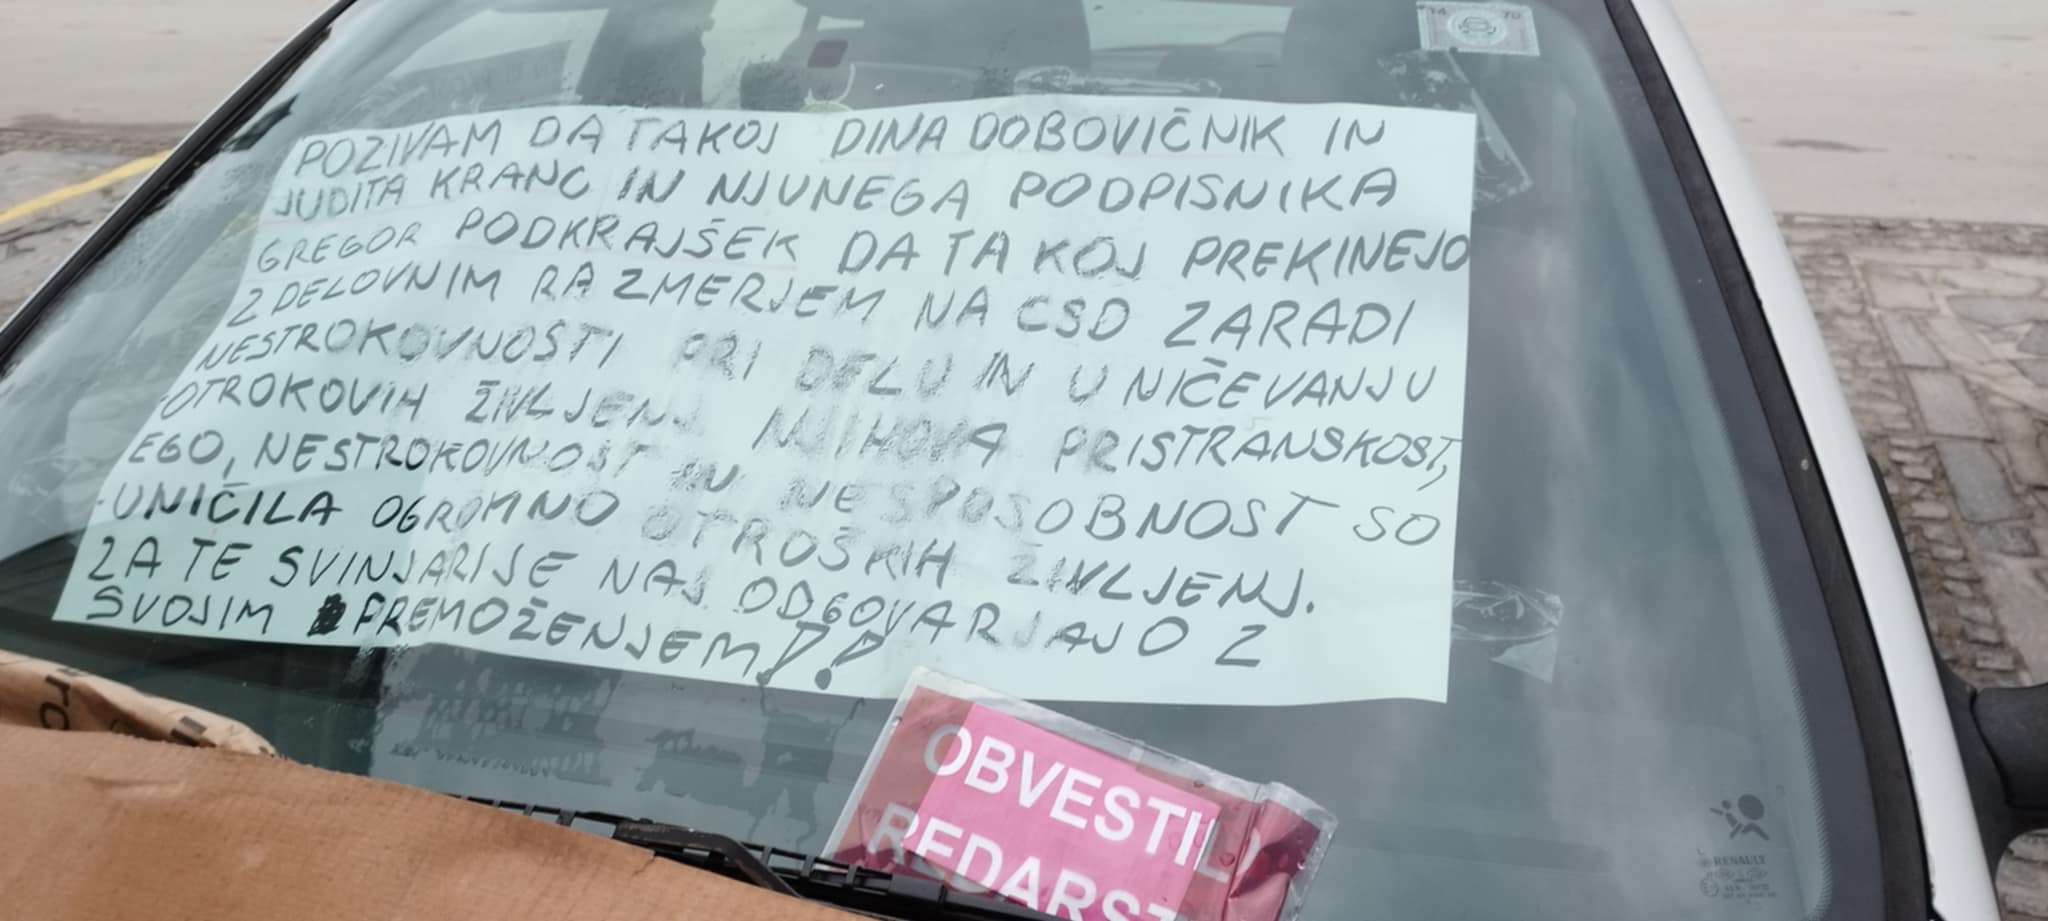 POZIVAM DA TAKOJ DINA DOBOVIČNIK IN
JUDITA KRANC IN NJUNEGA PODPISNIKA
GREGOR PODKRAJŠEK DA TAKOJ PREKINEJO
Z DELOVNIM RAZMERJEM NA CSD ZARADI
NESTROKOVNOSTI PRI DELU IN UNIČEVANJU
OTROKOVIH ŽIVLJENJ NJIHOVA PRISTRANSKOST,
EGO, NESTROKOVNOST IN NESPOSOBNOST SO
UNIČILA OGROMNO OTROŠKIH ŽIVLJENJ.
ZA TE SVINJARIJE NAJ ODGOVARJAJO Z
SVOJIM PREMOŽENJEM!!
OBVESTILO
REDARS
RENAULT